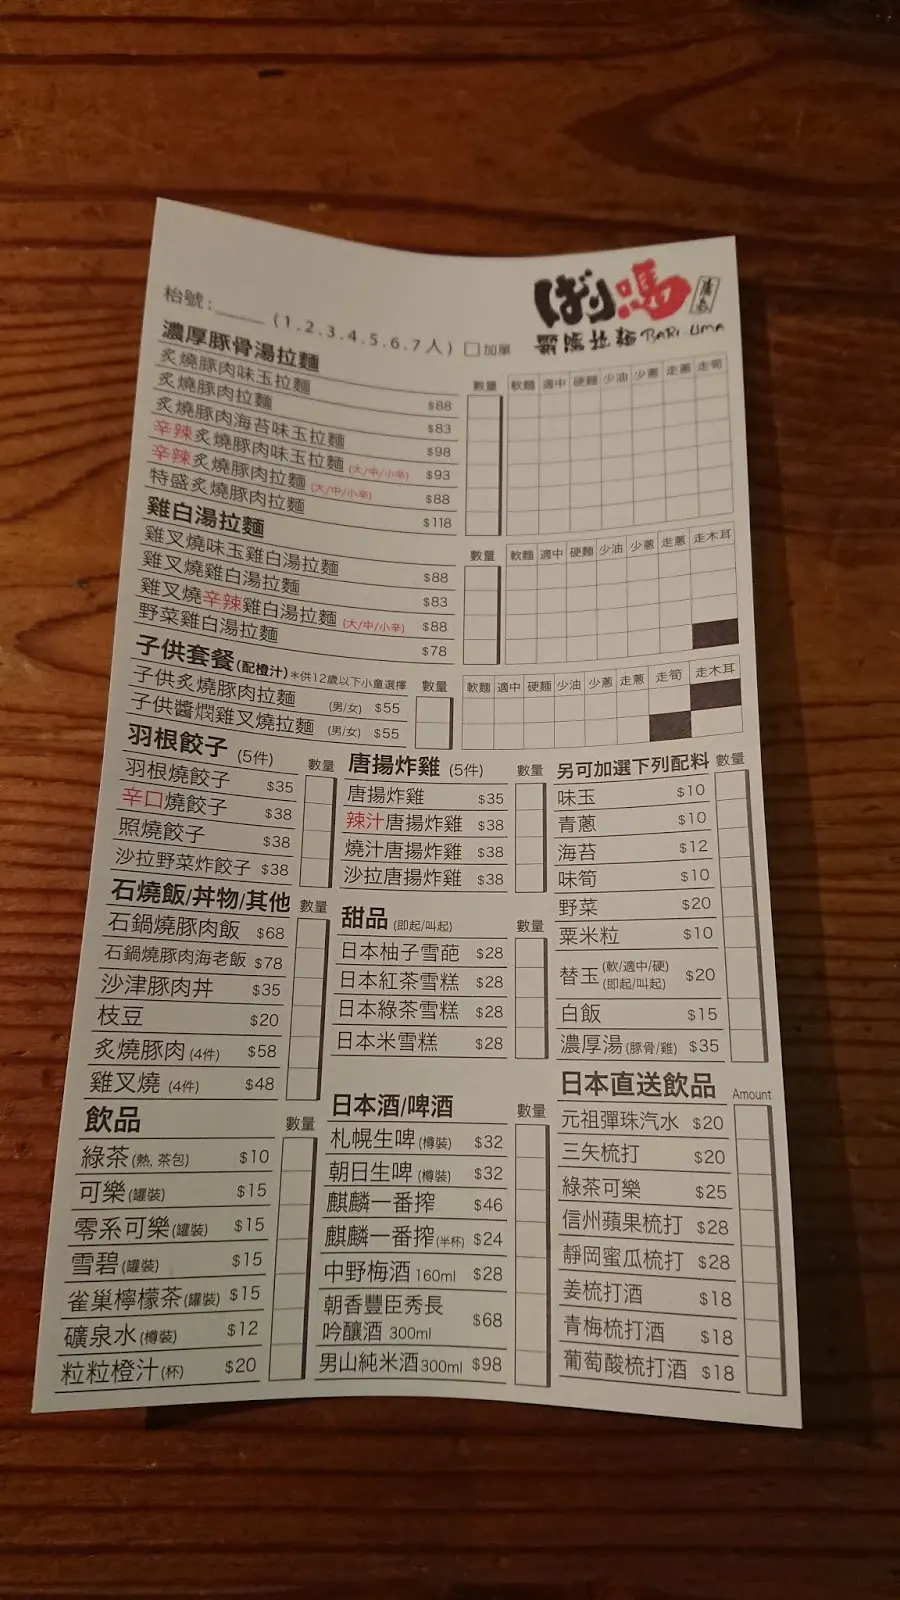 ばり嗎
覇嗎拉麵 BARI UMA
枱號:_____ (1.2.3.4.5.6.7人) □加單
濃厚豚骨湯拉麵 數量 軟麵 適中 硬麵 少油 少蔥 走蔥 走筍
炙燒豚肉味玉拉麵 $88
炙燒豚肉拉麵 $83
炙燒豚肉海苔味玉拉麵 $98
辛辣炙燒豚肉味玉拉麵 (大/中/小辛) $93
辛辣炙燒豚肉拉麵 (大/中/小辛) $88
特盛炙燒豚肉拉麵 $118
雞白湯拉麵 數量 軟麵 適中 硬麵 少油 少蔥 走蔥 走木耳
雞叉燒味玉雞白湯拉麵 $88
雞叉燒雞白湯拉麵 $83
雞叉燒辛辣雞白湯拉麵 (大/中/小辛) $88
野菜雞白湯拉麵 $78
子供套餐(配橙汁) *供12歲以下小童選擇 數量 軟麵 適中 硬麵 少油 少蔥 走蔥 走筍 走木耳
子供炙燒豚肉拉麵 (男/女) $55
子供醬燜雞叉燒拉麵 (男/女) $55
羽根餃子 (5件) 數量
羽根燒餃子 $35
辛口燒餃子 $38
照燒餃子 $38
沙拉野菜炸餃子 $38
石燒飯/丼物/其他 數量
石鍋燒豚肉飯 $68
石鍋燒豚肉海老飯 $78
沙津豚肉丼 $35
枝豆 $20
炙燒豚肉 (4件) $58
雞叉燒 (4件) $48
飲品 數量
綠茶(熱, 茶包) $10
可樂(罐裝) $15
零系可樂(罐裝) $15
雪碧(罐裝) $15
雀巢檸檬茶(罐裝) $15
礦泉水(樽裝) $12
粒粒橙汁(杯) $20
唐揚炸雞 (5件) 數量
唐揚炸雞 $35
辣汁唐揚炸雞 $38
燒汁唐揚炸雞 $38
沙拉唐揚炸雞 $38
甜品 (即起/叫起) 數量
日本柚子雪葩 $28
日本紅茶雪糕 $28
日本綠茶雪糕 $28
日本米雪糕 $28
日本酒/啤酒 數量
札幌生啤(樽裝) $32
朝日生啤(樽裝) $32
麒麟一番搾 $46
麒麟一番搾(半杯) $24
中野梅酒 160ml $28
朝香豐臣秀長
吟釀酒 300ml $68
男山純米酒300ml $98
另可加選下列配料 數量
味玉 $10
青蔥 $10
海苔 $12
味筍 $10
野菜 $20
粟米粒 $10
替玉(軟/適中/硬)
(即起/叫起) $20
白飯 $15
濃厚湯(豚骨/雞) $35
日本直送飲品 Amount
元祖彈珠汽水 $20
三矢梳打 $20
綠茶可樂 $25
信州蘋果梳打 $28
靜岡蜜瓜梳打 $28
姜梳打酒 $18
青梅梳打酒 $18
葡萄酸梳打酒 $18